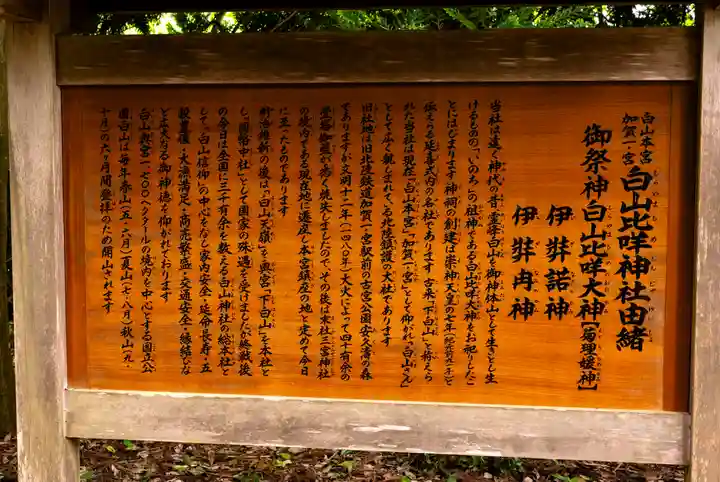 白山本宮
加賀一宮
白山比咩神社由緒
御祭神 白山比咩大神【菊理媛神】
伊弉諾神
伊弉冉神
当社は遠く神代の昔 霊峰白山を御神体山として生きとし生
けるものの、"いのち"の祖神である白山比咩大神をお祀りしたこ
とにはじまります 神祠の創建は崇神天皇の七年
伝えうる延喜式内の名社であります 古来「下白山」と称えら
れた当社は現在「白山本宮」加賀一ノ宮」として仰がれ「白山さん」
として広く親しまれている北陸鎮護の大社であります
旧社地は旧北陸鉄道加賀一の宮駅前の古宮公園安久濤の森
でありますが文明十二年(一四八〇年)大火によって四十有余の
堂塔伽藍が悉く焼失しましたので、その後は末社三宮神社
の境内である現在地に遷座し本宮鎮座の地と定めて今日
に至ったものであります
明治維新の後は「白山天嶺」を奥宮「下白山」を本社と
し、「国幣中社」として国家の殊遇を受けましたが終戦後
の今日は全国に三千有余を数える白山神社の総本社と
して「白山信仰」の中心をなし家内安全・延命長寿・五
穀豊穣・大漁満足・商売繁盛・交通安全・縁結びな
ど広大なる御神徳を仰がれております
白山奥宮一七〇〇ヘクタールの境内を中心とする国立公
園白山は毎年春山(五・六月)夏山(七・八月)秋山(九・
十月)の六ヶ月間登拝のため開山されます